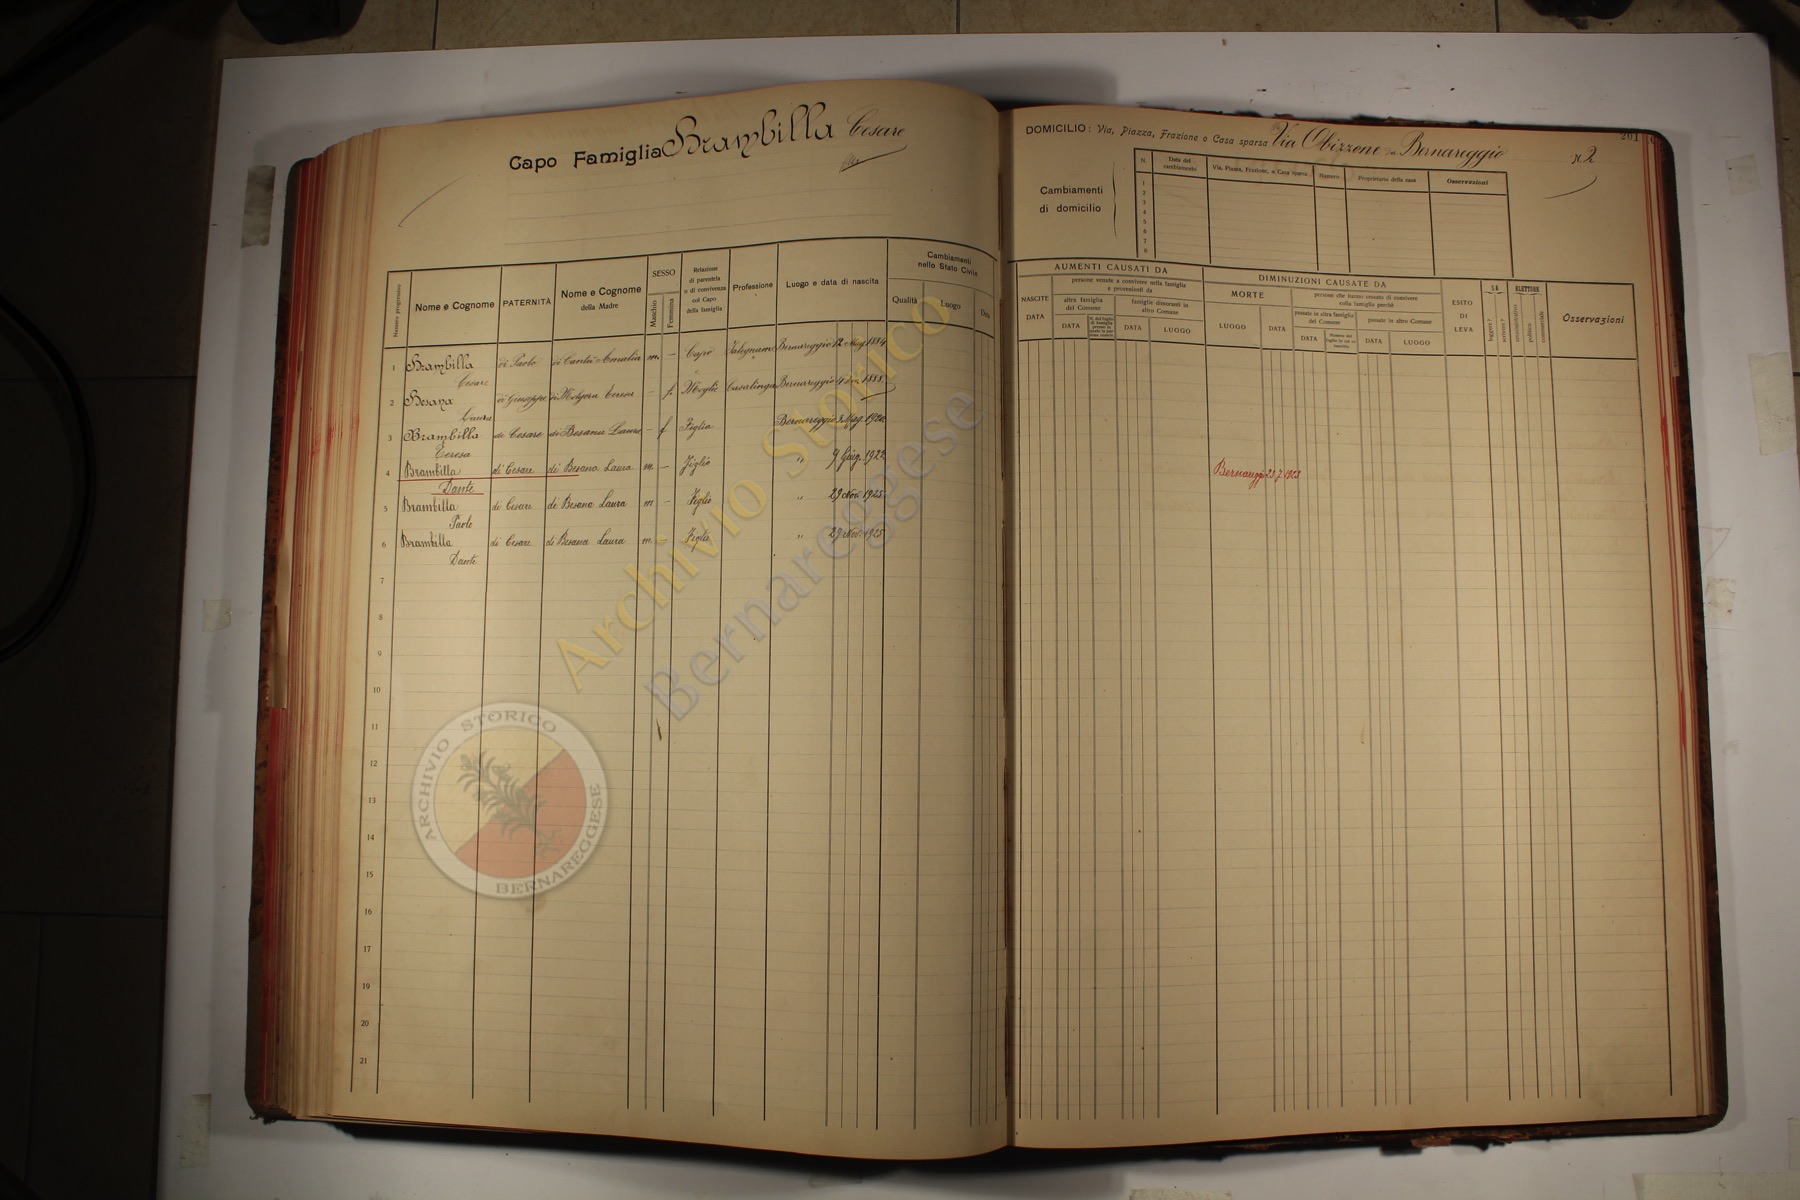 Capo Famiglia Brambilla Cesare
Nome e Cognome
PATERNITÀ
Nome e Cognome
della Madre
SESSO
Maschio
Femmina
Relazione
di parentela
o di convivenza
col Capo
della famiglia
Professione
Luogo e data di nascita
Cambiamenti
nello Stato Civile
Qualità
Luogo
Data
Numero progressivo
1 Brambilla di Paolo di Cantù Amalia m. – Capo Falegname Bernareggio 12 Mag. 1884
Cesare
2 Besana di Giuseppe di Teresa – f. Moglie Casalinga Bernareggio 1888.
Laura
3 Brambilla di Cesare di Besana Laura – f Figlia Bernareggio Mag. 1920
Teresa
4 Brambilla di Cesare di Besana Laura m. – Figlio " 9 Giug. 1922
Dante
5 Brambilla di Cesare di Besana Laura m – Figlio " 29 Nov. 1925
Paolo
6 Brambilla di Cesare di Besana Laura m. – Figlio " 29 Nov. 1925
Dante
7
8
9
10
11
12
13
14
15
16
17
18
19
20
21
DOMICILIO: Via, Piazza, Frazione o Casa sparsa Via Obizzone da Bernareggio N 2
201
Cambiamenti
di domicilio
N.
Data del
cambiamento
Via, Piazza, Frazione, o Casa sparsa
Numero
Proprietario della casa
Osservazioni
1
2
3
4
5
6
7
8
AUMENTI CAUSATI DA
NASCITE
DATA
persone venute a convivere nella famiglia
e provenienti da
altra famiglia
del Comune
DATA
famiglie dimoranti in
altro Comune
DATA
LUOGO
DIMINUZIONI CAUSATE DA
MORTE
LUOGO
DATA
persone che hanno cessato di convivere
colla famiglia perchè
passate in altra famiglia
del Comune
DATA
passate in altro Comune
DATA
LUOGO
ESITO
DI
LEVA
SA
leggere?
scrivere?
ELETTORE
amministrativo
politico
commerciale
Osservazioni
Bernareggio 23 7 1923
Archivio Storico
Bernareggese
ARCHIVIO STORICO
BERNAREGGESE